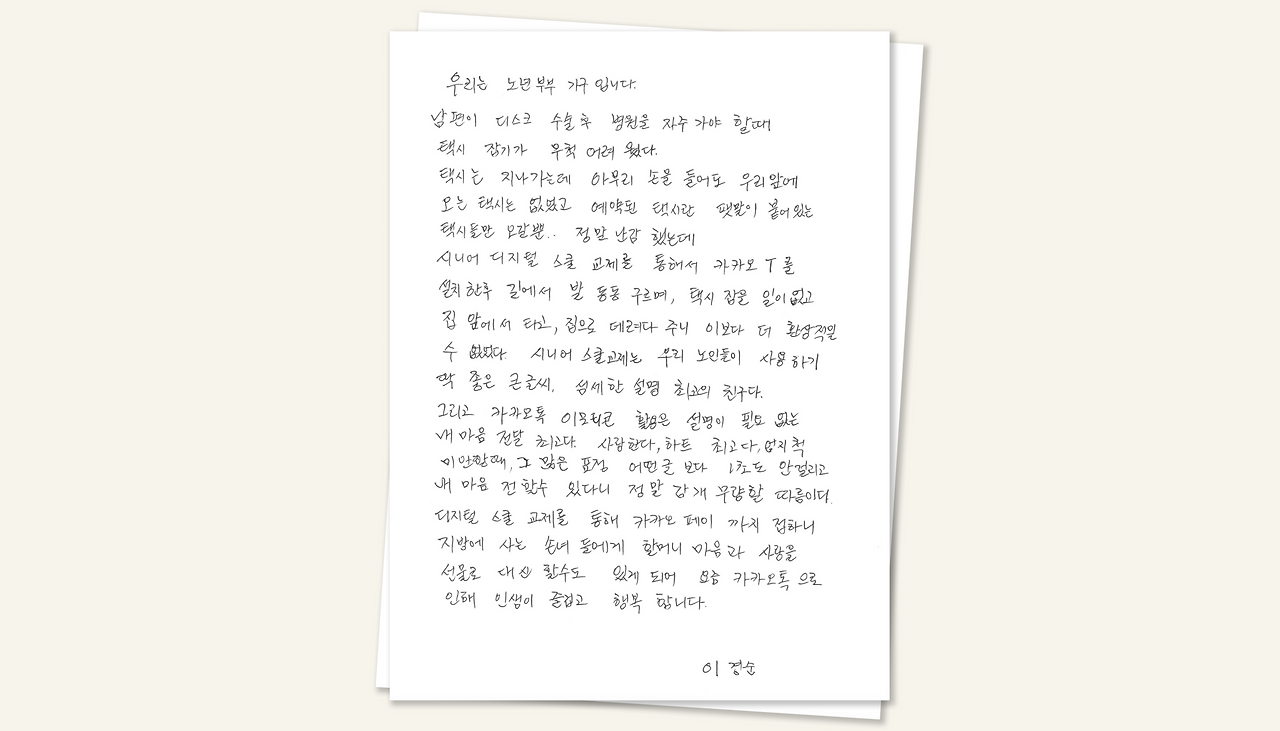 우리는 노년부부 가구 입니다.
남편이 디스크 수술후 병원을 자주 가야 할때
택시 잡기가 무척 어려 웠다.
택시는 지나가는데 아무리 손을 들어도 우리앞에
오는 택시는 없었고 예약된 택시란 팻말이 붙어있는
택시들만 오갈뿐.. 정말 난감 했는데
시니어 디지털 스쿨 교제를 통해서 카카오 T 를
설치 한후 길에서 발 동동 구르며, 택시 잡을 일이 없고
집 앞에서 타고, 집으로 데려다 주니 이보다 더 환상적일
수 없었다. 시니어 스쿨교제는 우리 노인들이 사용 하기
딱 좋은 큰글씨, 섬세한 설명 최고의 친구다.
그리고 카카오톡 이모티콘 활용은 설명이 필요 없는
내 마음 전달 최고다. 사랑한다, 하트 최고다, 엄지척
미안할때, 그 많은 표정 어떤글 보다 1초도 안걸리고
내 마음 전할수 있다니 정말 감개 무량할 따름이다.
디지털 스쿨 교제를 통해 카카오 페이 까지 접하니
지방에 사는 손녀 들에게 할머니 마음과 사랑을
선물로 대신 할수도 있게 되어 요즘 카카오톡 으로
인해 인생이 즐겁고 행복 합니다.
이 경순